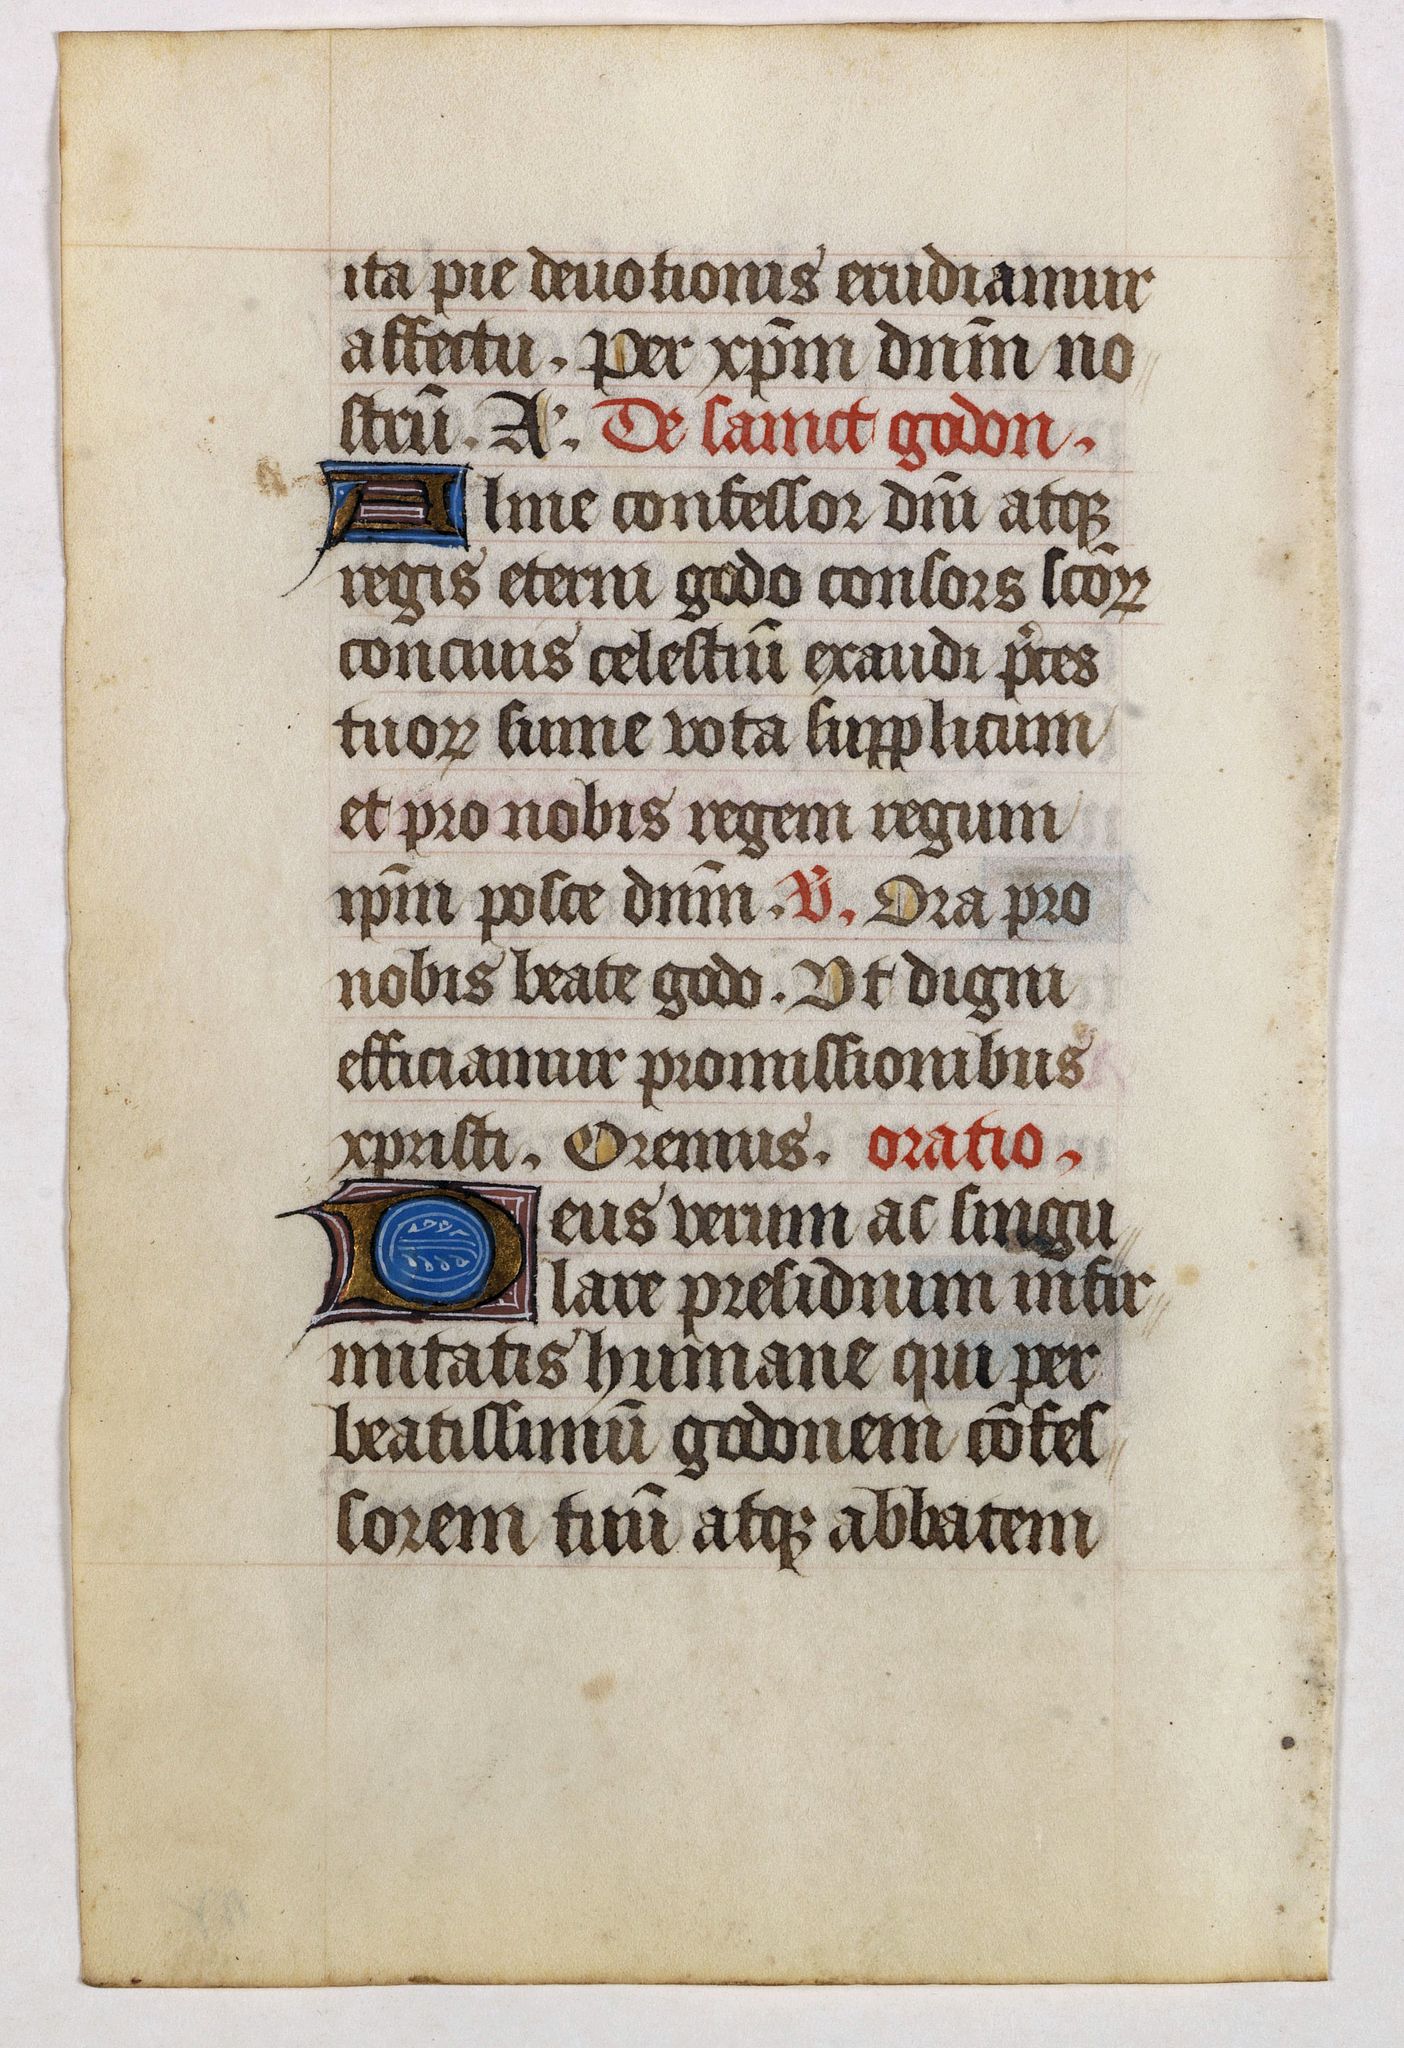 ita pie deuotionis erudiamur
affectu. Per xp̄m dn̄m no
strū. A. De sainct godon.
Alme confessor dn̄i atqꝫ
regis eterni godo consors scōꝝ
conciuis celestiū exaudi p̄ces
tuoꝝ sume vota supplicum
et pro nobis regem regum
ip̄m posce dn̄m. ℣. Ora pro
nobis beate godo. Vt digni
efficiamur promissionibus
xpristi. Oremus. oratio.
Deus verum ac singu
lare presidiium infir
mitatis humane qui per
beatissimū godonem cōfes
sorem tuū atqꝫ abbatem